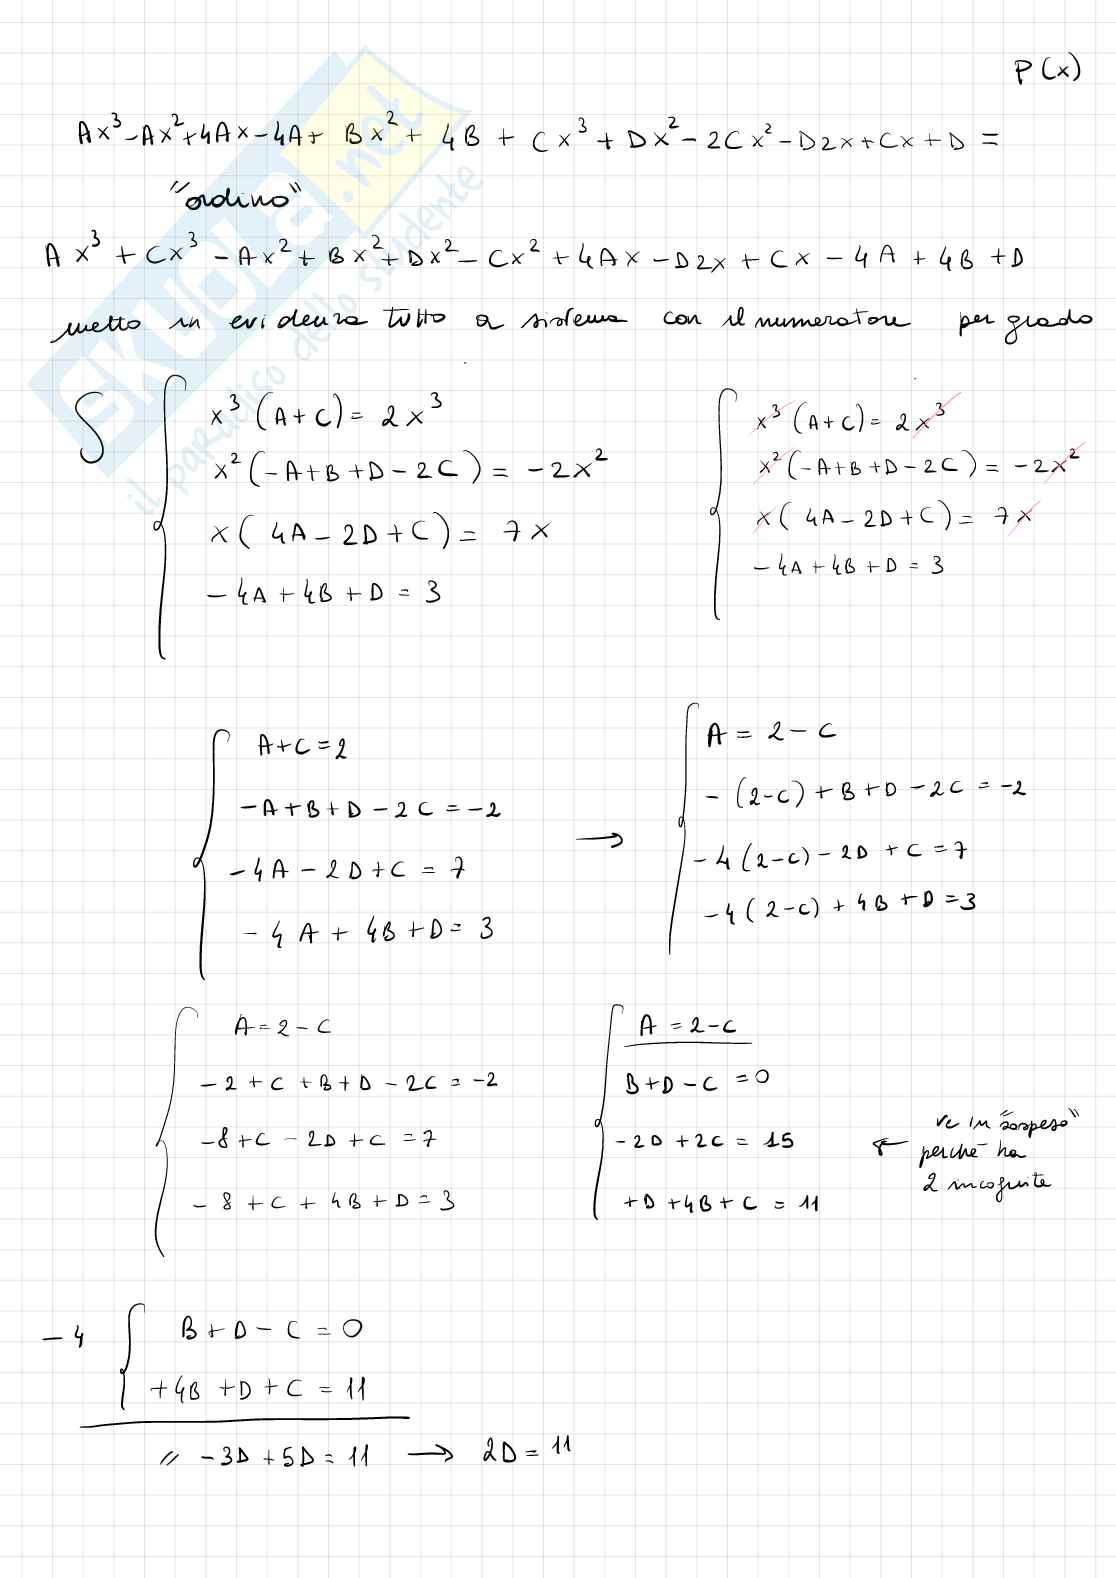 P(x)
Ax³-Ax²+4Ax-4A+Bx²+4B+Cx³+Dx²-2Cx²-D2x+Cx+D=
"ordino"
Ax³+Cx³-Ax²+Bx²+Dx²-Cx²+4Ax-D2x+Cx-4A+4B+D
metto in evidenza tutto a sistema con il numeratore per grado
S
x³(A+C)=2x³
x²(-A+B+D-2C)=-2x²
x(4A-2D+C)=7x
-4A+4B+D=3
x³(A+C)=2x³
x²(-A+B+D-2C)=-2x²
x(4A-2D+C)=7x
-4A+4B+D=3
A+C=2
-A+B+D-2C=-2
-4A-2D+C=7
-4A+4B+D=3
→
A=2-C
-(2-C)+B+D-2C=-2
-4(2-C)-2D+C=7
-4(2-C)+4B+D=3
A=2-C
-2+C+B+D-2C=-2
-8+C-2D+C=7
-8+C+4B+D=3
A=2-C
B+D-C=0
-2D+2C=15
+D+4B+C=11
←
va in "sospeso"
perché ha
2 incognite
-4
B+D-C=0
+4B+D+C=11
// -3D+5D=11 → 2D=11
SKUOLA.net
il paradiso dello studente